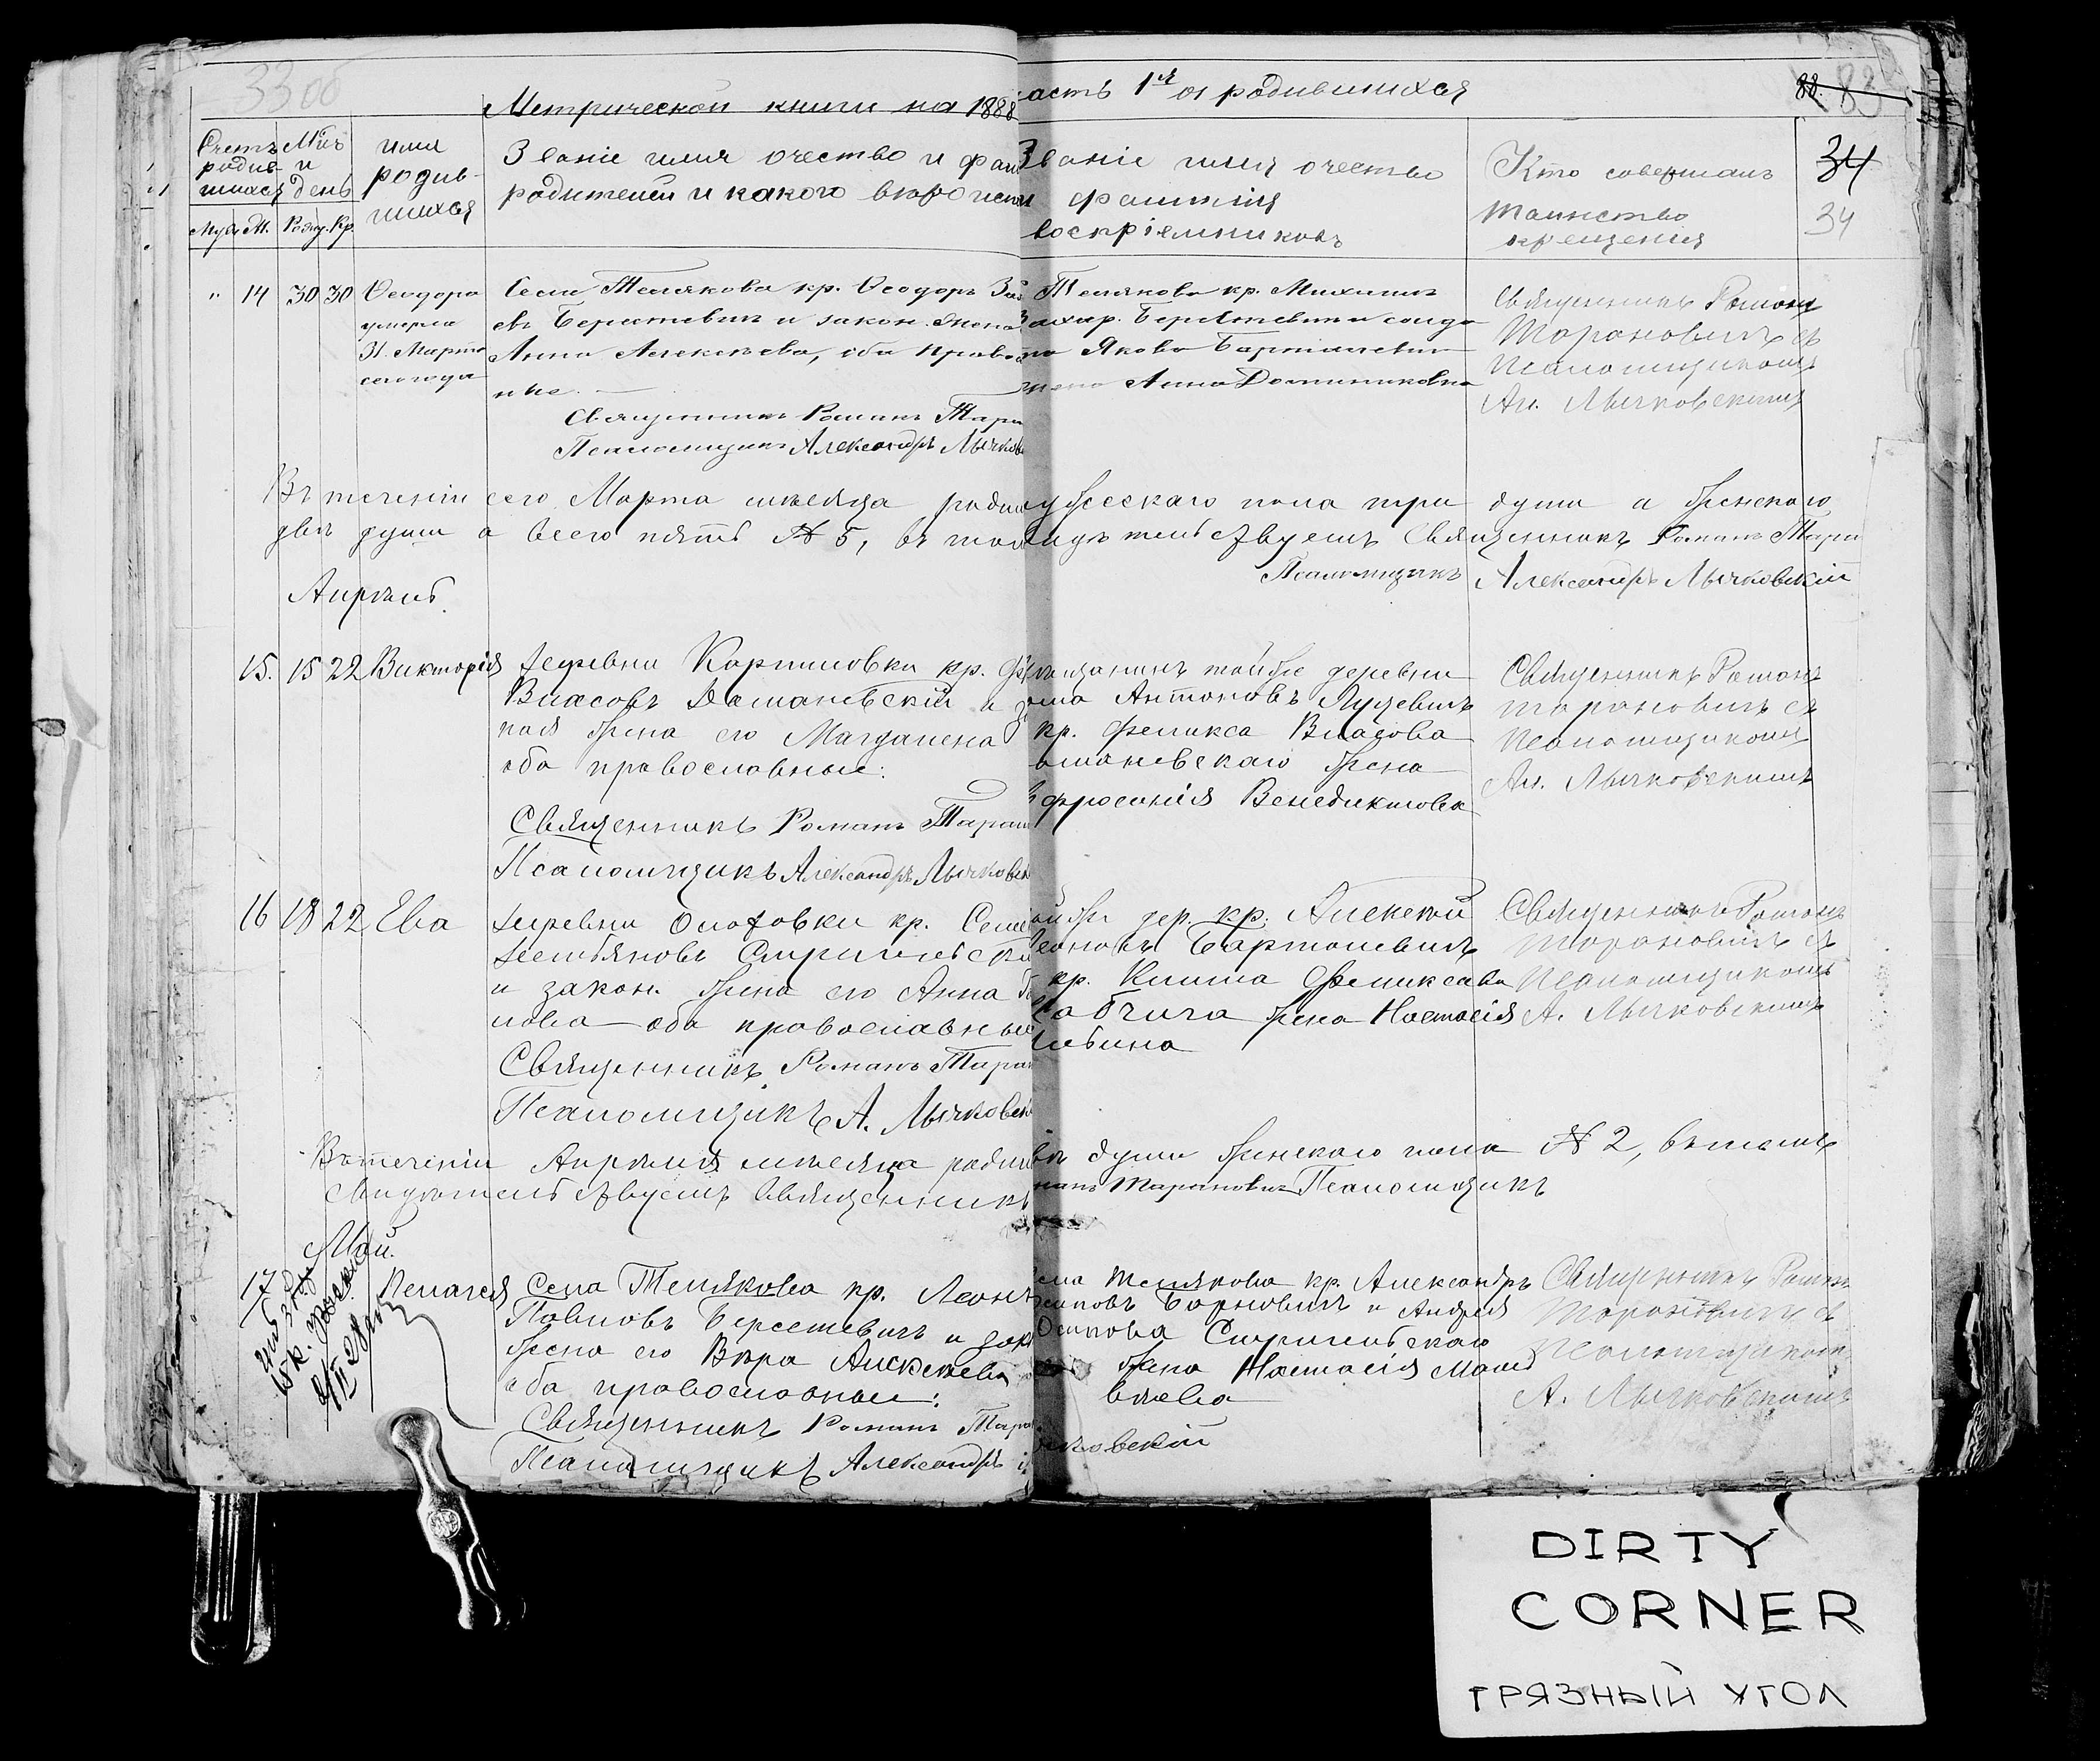 33 об
Метрической книги на 1888
асть 1ая о родившихся
88. 83
Счетъ родив- шихся
Мцъ и день
имя родив- шихся
Званіе имя очество и фам
родителей и какого вѣроиспо
Званіе имя очество
и фамилія
воспріемниковъ
Кто совершалъ
таинство
крещенія
34
34
Муж. Ж. Рожд. Кр.
" 14 30 30 Ѳеодора
умерла
31. Марта
сего года
Села Телякова кр. Ѳеодоръ
евъ Берсетевичъ и закон. жена
Анна Алексѣева, оба Право
ные.
Священникъ Романъ Тара
Псаломщикъ Александръ Лычков
Телякова кр. Михаилъ
Захар. Берсетевичъ и солда
та Якова Бартошевича
жена Анна Доминиковна
Священникъ Романъ
Тарановичъ съ
Псаломщикомъ
Ал. Лычковскимъ
Въ теченіи сего Марта мѣсяца родил мужескаго пола три души а женскаго
двѣ души а всего пять № 5, въ томъ свидѣтельствуемъ Священникъ Романъ Тара
Псаломщикъ Александръ Лычковскій
Апрѣль.
15. 15 22 Викторія
деревни Карпиловки кр.
Власовъ Домановскій и з
ная жена его Магдалена
оба православные:
Священникъ Романъ Таран
Псаломщикъ Александръ Лычковск
мѣщанинъ той же деревни
Антоновъ Луцевичъ
кр. Феликса Власова
омановскаго жена
Ефросинія Венедиктова
Священникъ Романъ
Тарановичъ съ
Псаломщикомъ
Ал. Лычковскимъ
16 18 22 Ева
деревни Осовки кр.
Демьяновъ Стригельскі
и закон. жена его Анна
лова оба православные
Священникъ Романъ Таран
Псаломщикъ А. Лычковск
той же дер. кр. Алексѣй
Леоновъ Бартошевичъ
кр. Клима Феликсова
Бабчига жена Настасія
Священникъ Романъ
Тарановичъ съ
Псаломщикомъ
А. Лычковскимъ
Въ теченіи Апрѣля мѣсяца родил двѣ души женскаго пола № 2, въ чемъ
свидѣтельствуемъ Священникъ Романъ Тарановичъ Псаломщикъ
Май.
17 Пелагея
Села Телякова кр. Леонъ
Павловъ Берсетевичъ и зак
жена его Вѣра Алексѣева
оба православные:
Священникъ Романъ Тара
Псаломщикъ Александръ
села Телякова кр. Александръ
Осиповъ Барновичъ и Андрея
Осипова Стригельскаго
жена Настасія Матв
ѣева
чковскій
Священникъ Романъ
Тарановичъ съ
Псаломщикомъ
А. Лычковскимъ
DIRTY
CORNER
ГРЯЗНЫЙ УГОЛ